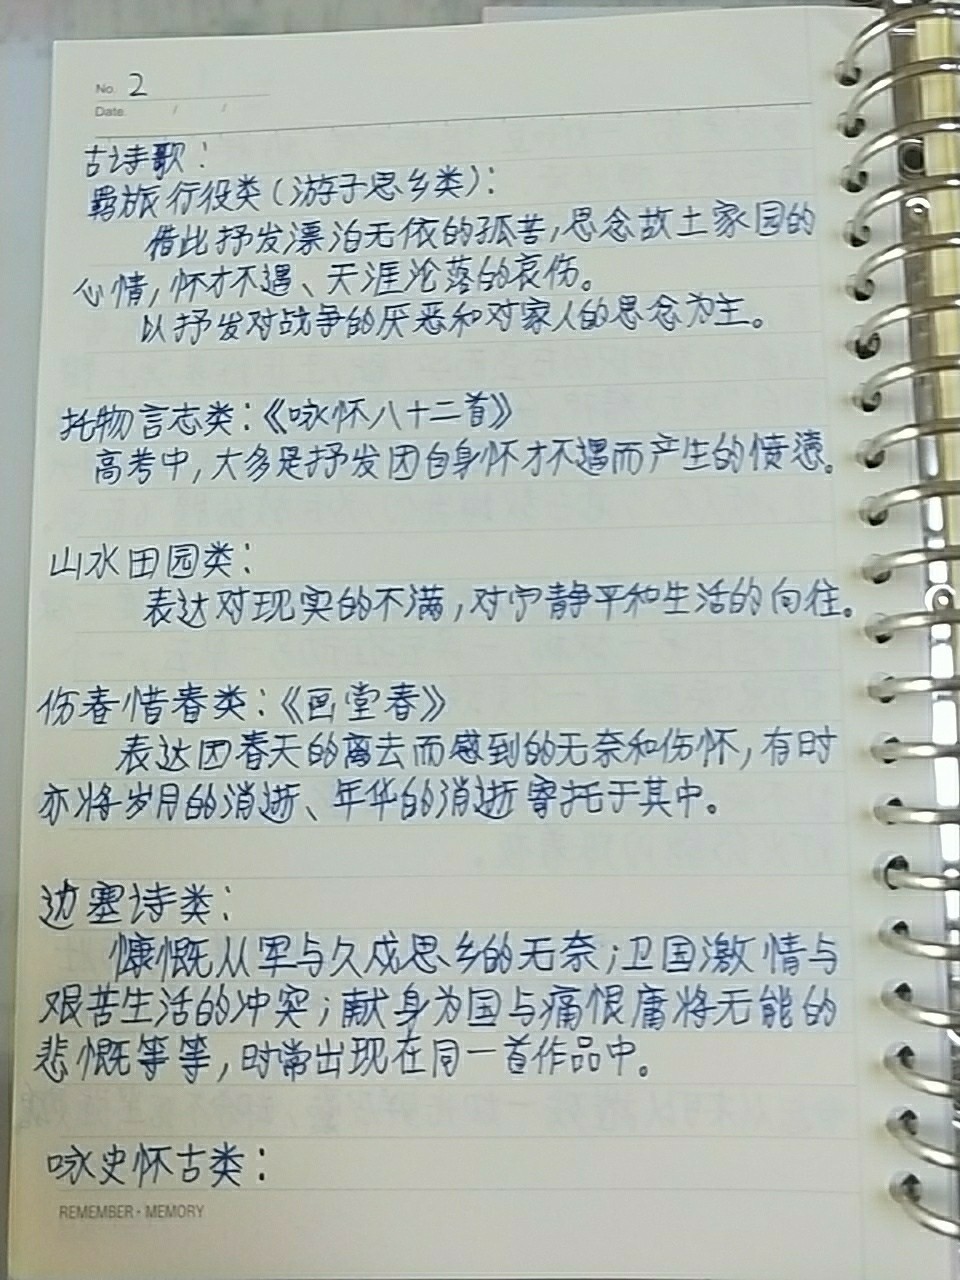 No. 2
Date / /
古诗歌：
羁旅行役类（游子思乡类）：
借此抒发漂泊无依的孤苦，思念故土家园的
心情，怀才不遇、天涯沦落的哀伤。
以抒发对战争的厌恶和对家人的思念为主。
托物言志类：《咏怀八十二首》
高考中，大多是抒发因自身怀才不遇而产生的愤懑。
山水田园类：
表达对现实的不满，对宁静平和生活的向往。
伤春惜春类：《画堂春》
表达因春天的离去而感到的无奈和伤怀，有时
亦将岁月的消逝、年华的消逝寄托于其中。
边塞诗类：
慷慨从军与久戍思乡的无奈；卫国激情与
艰苦生活的冲突；献身为国与痛恨庸将无能的
悲慨等等，时常出现在同一首作品中。
咏史怀古类：
REMEMBER·MEMORY